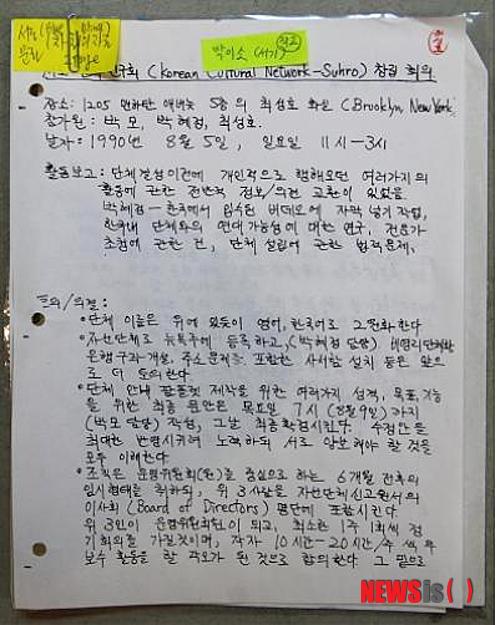 박이소 (서기)
연구회 (Korean Cultural Network-Suhro) 창립 회의
장소: 1205 맨하탄 애버뉴 5층의 최성호 화실 (Brooklyn, New York
참가원: 박 모, 박혜정, 최성호.
날자: 1990년 8월 5일, 일요일 11시-3시
활동보고: 단체결성이전에 개인적으로 행해오던 여러가지의
활동에 관한 전반적 정보/의견 교환이 있었음.
박혜정 - 한국에서 입수된 비데오에 자막 넣기 작업,
한국내 단체와의 연대 가능성에 대한 연구, 전문가
초청에 관한 건, 단체 설립에 관한 법적문제.
토의/의결:
•단체 이름은 위에 있듯이 영어, 한국어로 고정화한다
•자선단체로 뉴욕주에 등록하고, (박혜정 담당) 비영리단체의
은행구좌개설, 주소문제를 포함한 사서함 설치 등은 앞으
로 더 토의한다
•단체 안내 팜플렛 제작을 위한 여러가지 성격, 목표, 기능
을 위한 최종 문안은 목요일 7시 (8월 9일)까지
(박모 담당) 작성, 그날 최종확정시킨다. 수정안을
최대한 반영시키려 노력하되 서로 양보해야 할 것을
모두 이해한다
•조직은 운영위원회(원)을 중심으로 하는 6개월 전후의
임시형태를 취하되, 위 3사람을 자선단체신고원서의
이사회 (Board of Directors) 명단에 포함시킨다
위 3인이 운영위원회원이 되고, 최소한 1주 1회씩 정
기회의를 가질것이며, 각자 10시간-20시간/주 씩 무
보수 활동을 할 각오가 된 것으로 합의한다. 그 밑으로
NEWSis( )